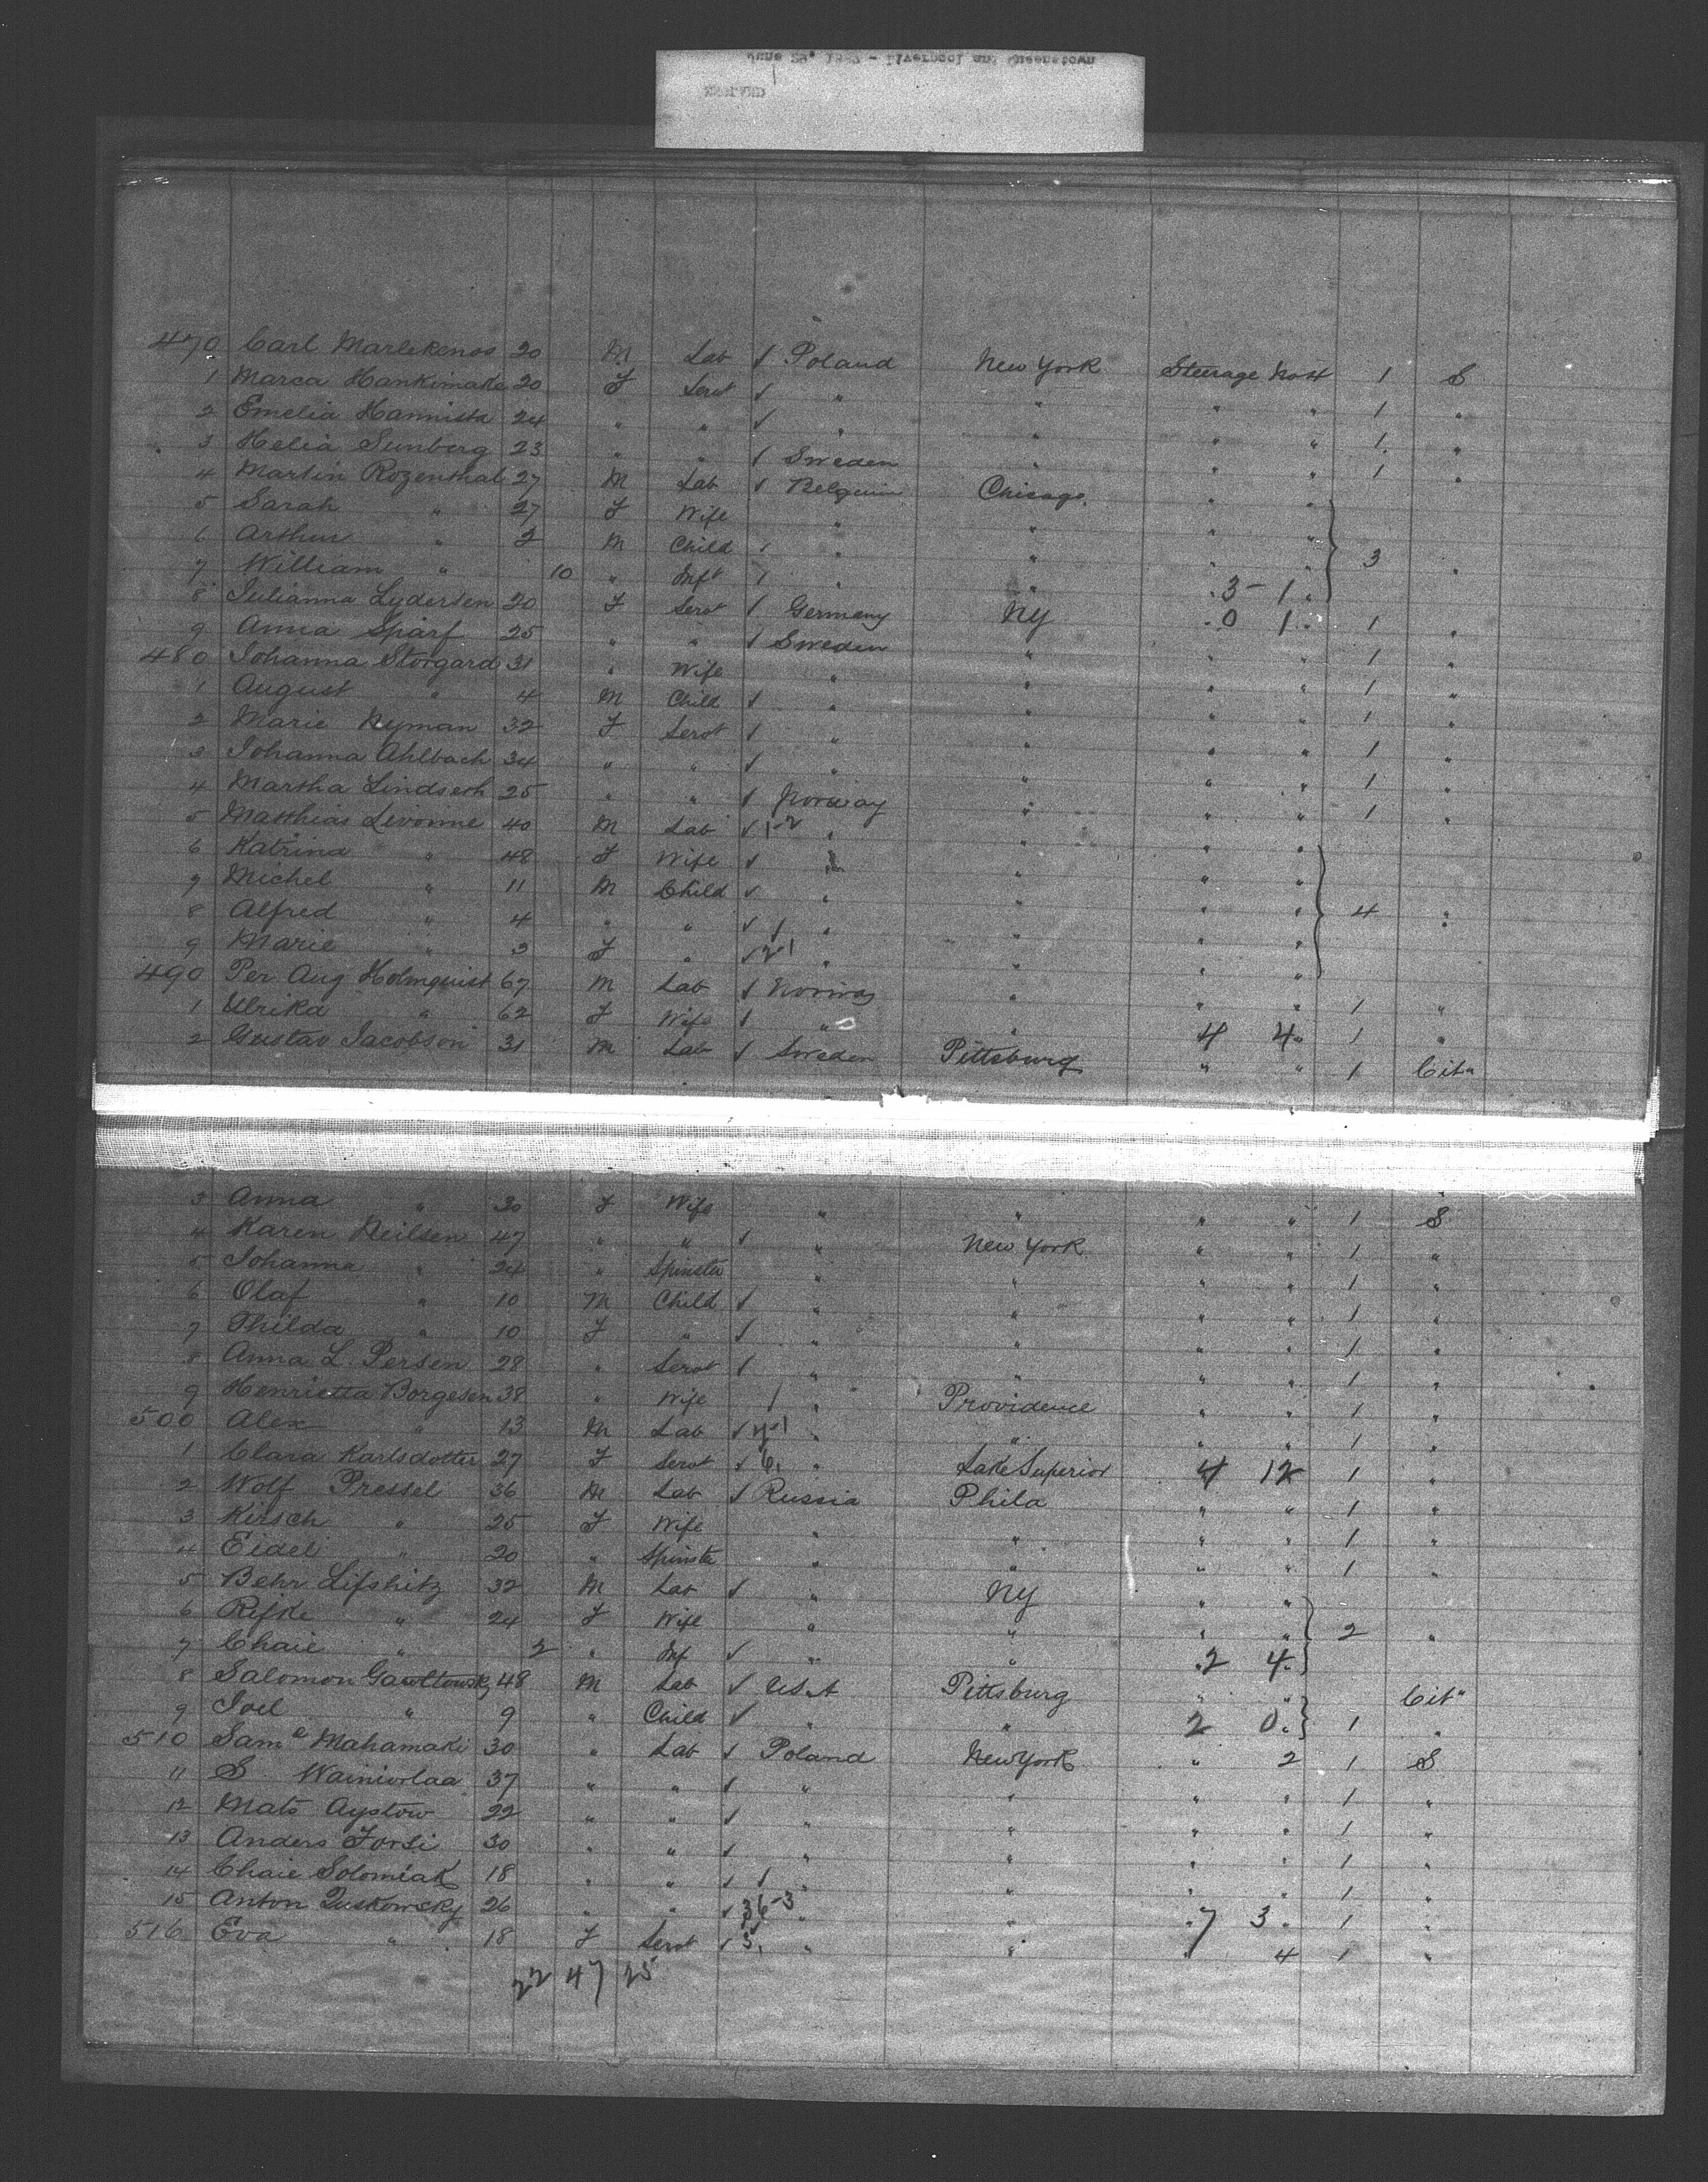 470 Carl Marlekenos 20 M Lab √ Poland New York Steerage No 4 1 S
1 Marca Hankimake 20 F Servt √ " " " " 1 "
2 Emelia Hannista 24 " " √ " " " " 1 "
3 Helia Sunberg 23 " " √ Sweden " " " 1 "
4 Martin Rozenthal 27 M Lab √ Belguim Chicago " "
5 Sarah " 27 F Wife " " " "
6 Arthur " 2 M Child √ " " " " 3 "
7 William " 10 " Inft √ " " 3 - 1
8 Julianna Lydersen 20 F Servt √ Germany NY 0 1 1 "
9 Anna Sparf 25 " " √ Sweden " " " 1 "
480 Johanna Storgard 31 " Wife " " " " 1 "
1 August " 4 M Child √ " " " " 1 "
2 Marie Nyman 32 F Servt √ " " " " 1 "
3 Johanna Ahlbach 34 " " √ " " " " 1 "
4 Martha Lindseth 25 " " √ Norway " " " 1 "
5 Matthias Livonne 40 M Lab √ 1-2 " " " "
6 Katrina " 48 F Wife √ " " " "
7 Michel " 11 M Child √ " " " "
8 Alfred " 4 " " √ 1 " " " " 4 "
9 Marie " 3 F " √ 2-1 " " " "
490 Per Aug Holmquist 67 M Lab √ Norway " " " 1 "
1 Ulrika " 62 F Wife √ " " 4 4 1 "
2 Gustav Jacobson 31 M Lab √ Sweden Pittsburg " " 1 Citn
3 Anna " 30 F Wife " " " " 1 S
4 Karen Neilsen 47 " " √ " New York " " 1 "
5 Johanna " 24 " Spinster " " " " 1 "
6 Olaf " 10 M Child √ " " " " 1 "
7 Thilda " 10 F " √ " " " " 1 "
8 Anna L. Persen 28 " Servt √ " " " " 1 "
9 Henrietta Borgesen 38 " Wife √ " Providence " " 1 "
500 Alex " 13 M Lab √ 4-1 " " " " 1 "
1 Clara Karlsdotter 27 F Servt √ 6. " Lake Superior 4 12 1 "
2 Wolf Pressel 36 M Lab √ Russia Phila " " 1 "
3 Kirsch " 25 F Wife " " " " 1 "
4 Eidel " 20 " Spinster " " " " 1 "
5 Behr Lifshitz 32 M Lab √ " NY " "
6 Rifke " 24 F Wife " " " " 2 "
7 Chaie " 2 " Inf √ " " 2 4
8 Salomon Gawltowsky 48 M Lab √ USA Pittsburg " " Citn
9 Joel " 9 " Child √ " " 2 0 1 "
510 Saml Mahamaki 30 " Lab √ Poland New York " 2 1 S
11 S Wainiorlaa 37 " " √ " " " " 1 "
12 Mats Aystow 22 " " √ " " " " 1 "
13 Anders Forsi 30 " " √ " " " " 1 "
14 Chaie Solomiak 18 " " √ 1 " " " " 1 "
15 Anton Quskowsky 26 " " √ 36-3 " " 7 3 1 "
516 Eva " 18 F Servt √ 3. " " " 4 1 "
22 47 25